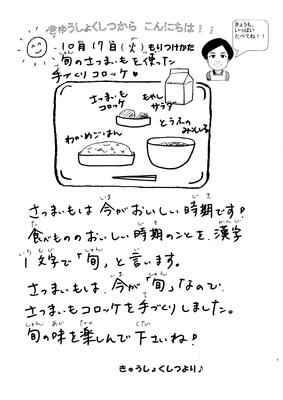 きゅうしょくしつから こんにちは！！
きょうも、
いっぱい
たべてね！！
10月17日(火)もりつけかた
旬のさつまいもを使った
手づくりコロッケ♥
さつまいも
コロッケ
もやし
サラダ
とうふの
みそしる
わかめごはん
さつまいもは今がおいしい時期です！
食べもののおいしい時期のことを、漢字
1文字で「旬」と言います。
さつまいもは、今が「旬」なので、
さつまいもコロッケを手づくりしました。
旬の味を楽しんで下さいね！
きゅうしょくしつより♪